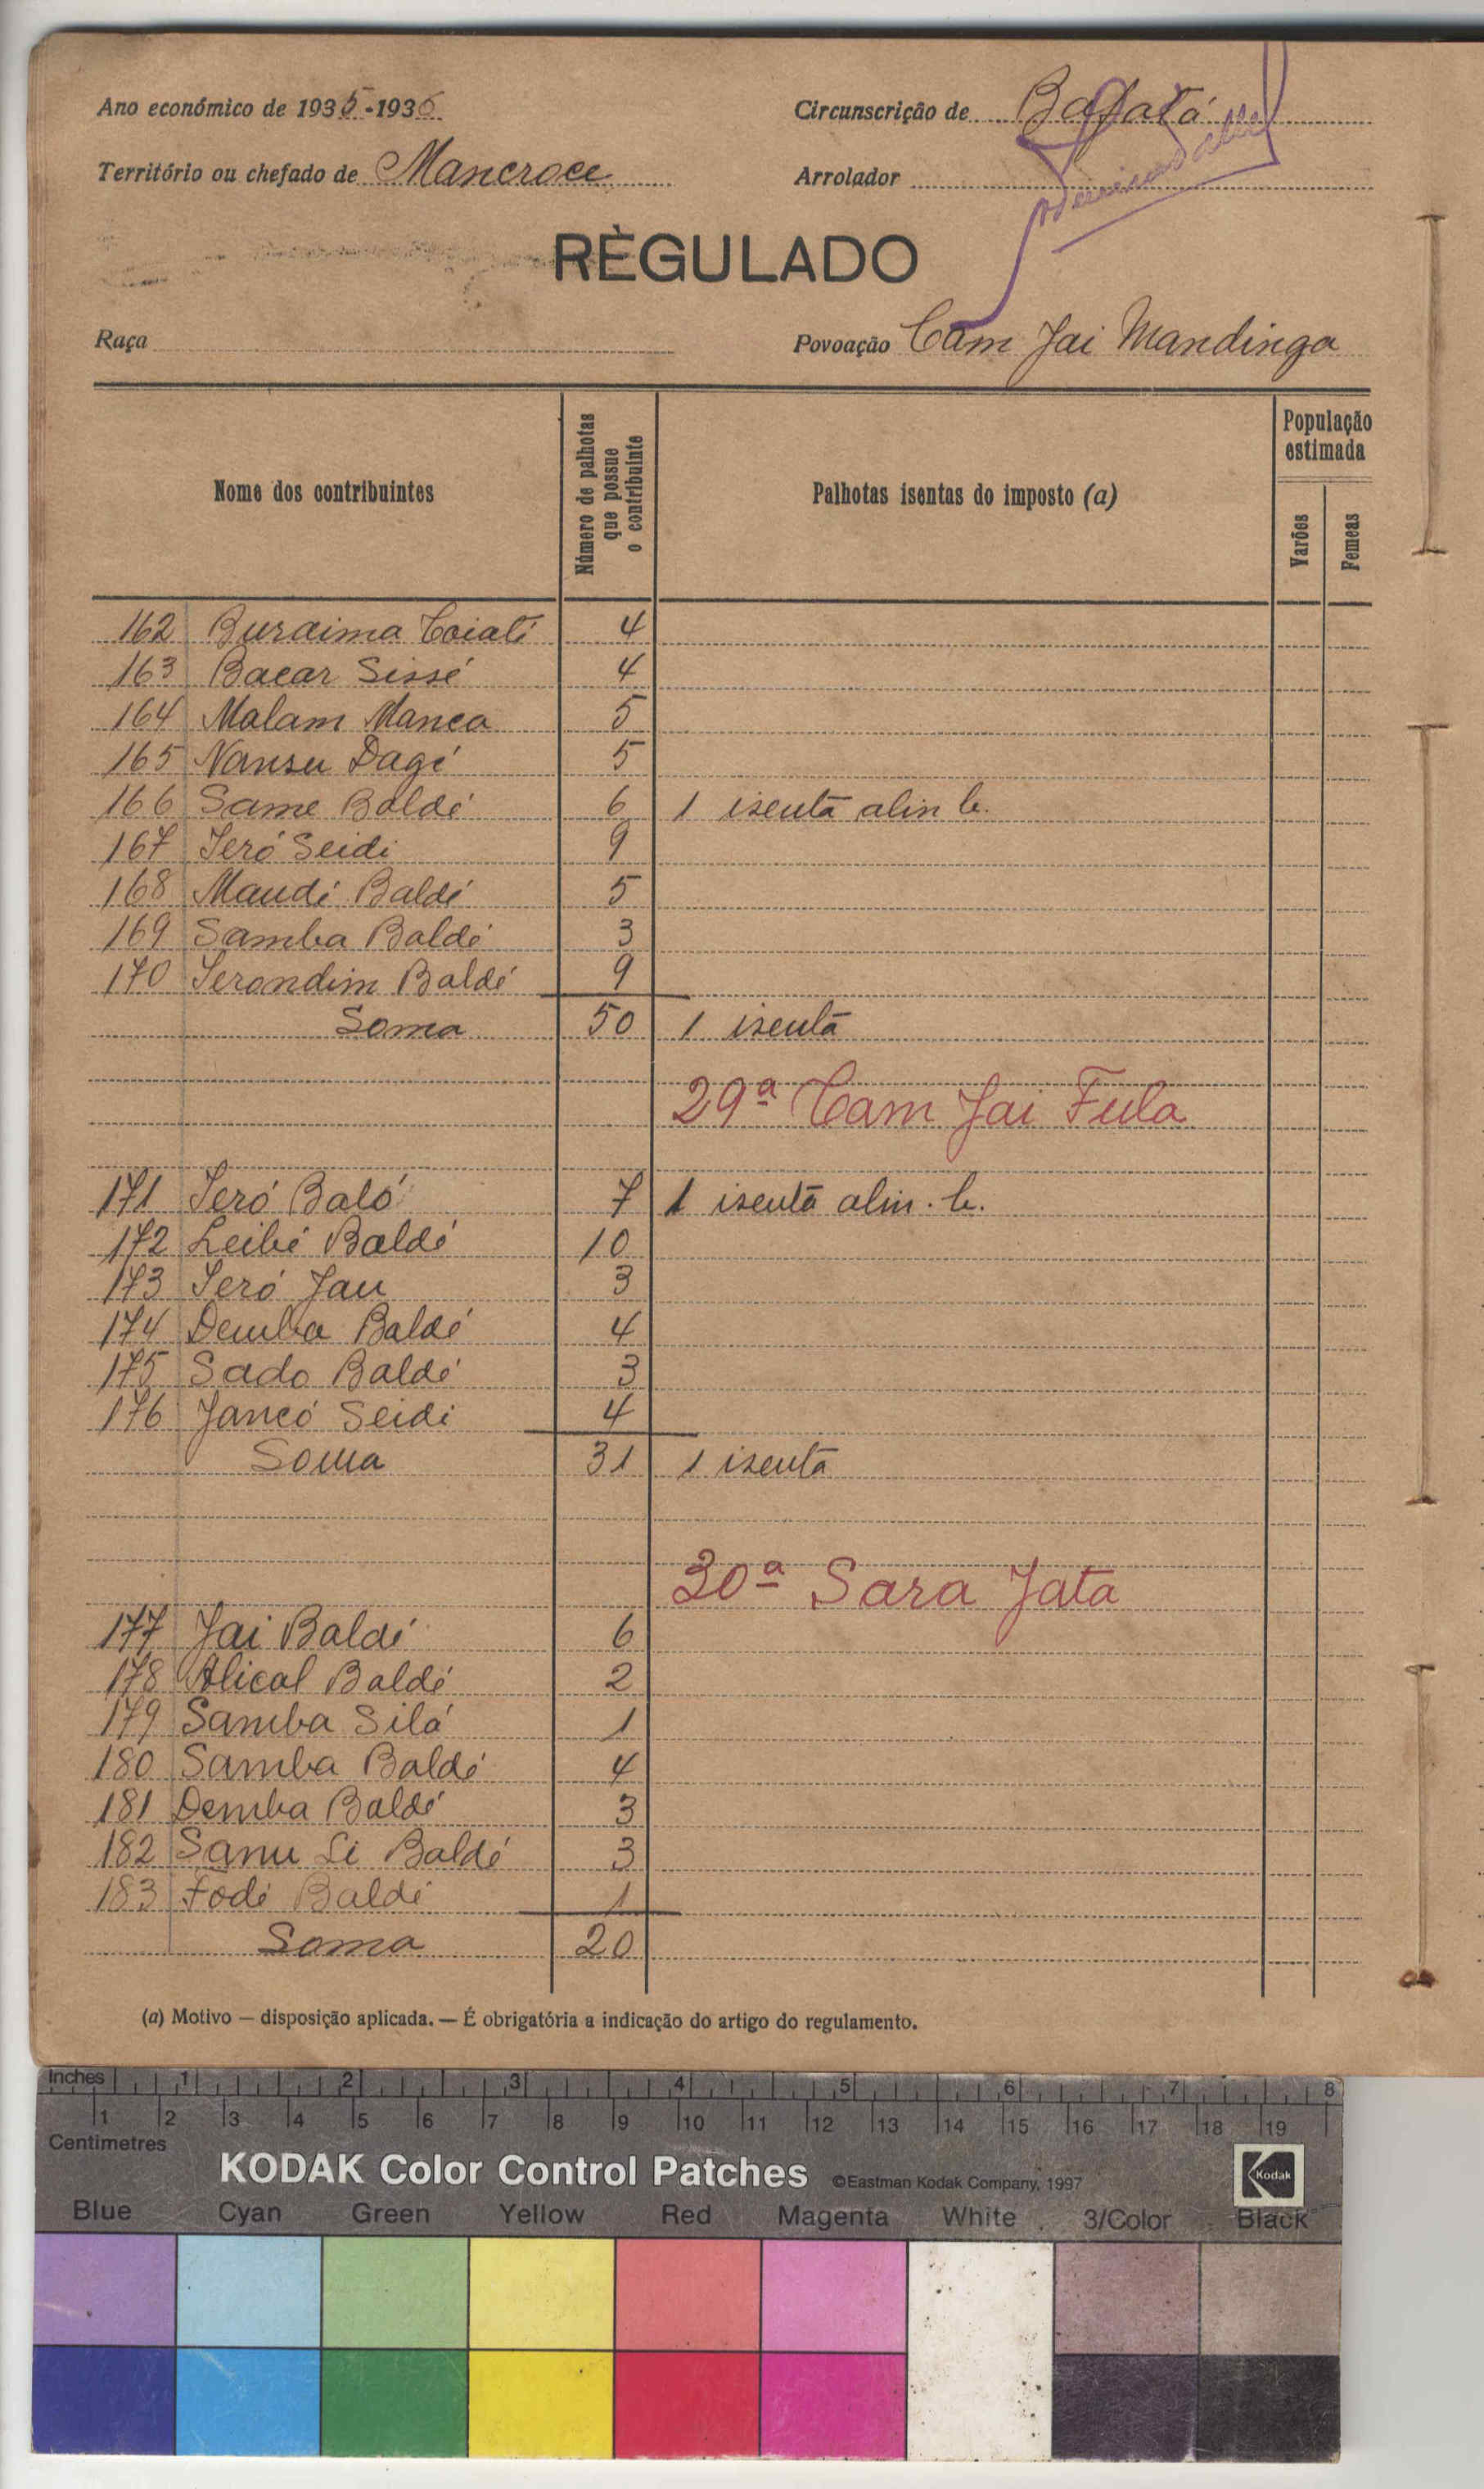 Ano económico de 1935-1936
Circunscrição de Bafatá
Território ou chefado de Mancroce
Arrolador
RÈGULADO
Raça
Povoação Cam Jai Mandinga
Nome dos contribuintes
Número de palhotas que possue o contribuinte
Palhotas isentas do imposto (a)
População estimada
Varões
Femeas
162 Buraima Coiaté 4
163 Bacar Sissé 4
164 Malam Manca 5
165 Nansu Dagé 5
166 Same Baldé 6 1 isenta alin b.
167 Jeró Seidi 9
168 Maudé Baldé 5
169 Samba Baldé 3
170 Jerondim Baldé 9
Soma 50 1 isenta
29ª Cam Jai Fula
171 Jeró Baló 7 1 isenta alin. b.
172 Leibé Baldé 10
173 Jeró Jau 3
174 Demba Baldé 4
175 Sado Baldé 3
176 Jancó Seidi 4
Soma 31 1 isenta
30ª Sara Jata
177 Jai Baldé 6
178 Alical Baldé 2
179 Samba Silá 1
180 Samba Baldé 4
181 Demba Baldé 3
182 Sanu Li Baldé 3
183 Fodé Baldé 1
Soma 20
(a) Motivo — disposição aplicada. — É obrigatória a indicação do artigo do regulamento.
Inches 1 2 3 4 5 6 7 8
1 2 3 4 5 6 7 8 9 10 11 12 13 14 15 16 17 18 19
Centimetres
KODAK Color Control Patches ©Eastman Kodak Company, 1997 Kodak
Blue Cyan Green Yellow Red Magenta White 3/Color Black